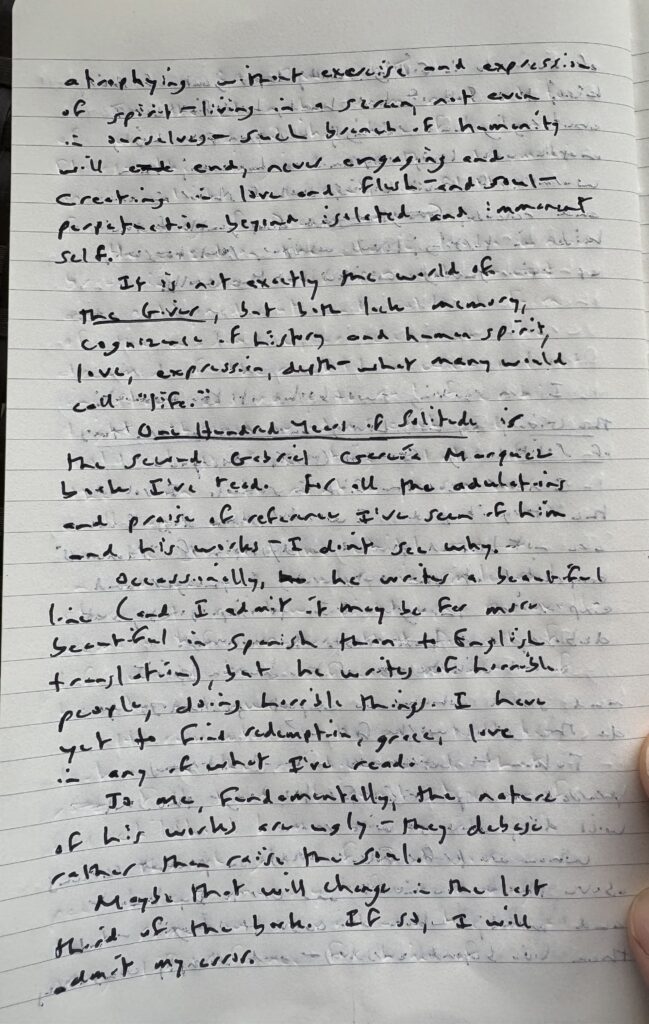 atrophying without exercise and expression
of spirit - living in a screen, not even
in ourselves - such branch of humanity
will end, never engaging and
creating in love and flesh-and-soul-
perpetuation beyond isolated and immanent
self.
It is not exactly the world of
The Giver, but both lack memory,
cognizance of history and human spirit,
love, expression, depth - what many would
call "life."
One Hundred Years of Solitude is
the second Gabriel García Marquez
book I've read. For all the adulations
and praise of reference I've seen of him
and his works - I don't see why.
Occassionally, he writes a beautiful
line (and I admit it may be far more
beautiful in Spanish than to English
translation), but he writes of horrible
people, doing horrible things. I have
yet to find redemption, grace, love
in any of what I've read.
To me, fundamentally, the nature
of his works are ugly - they debase
rather than raise the soul.
Maybe that will change in the last
third of the book. If so, I will
admit my error.